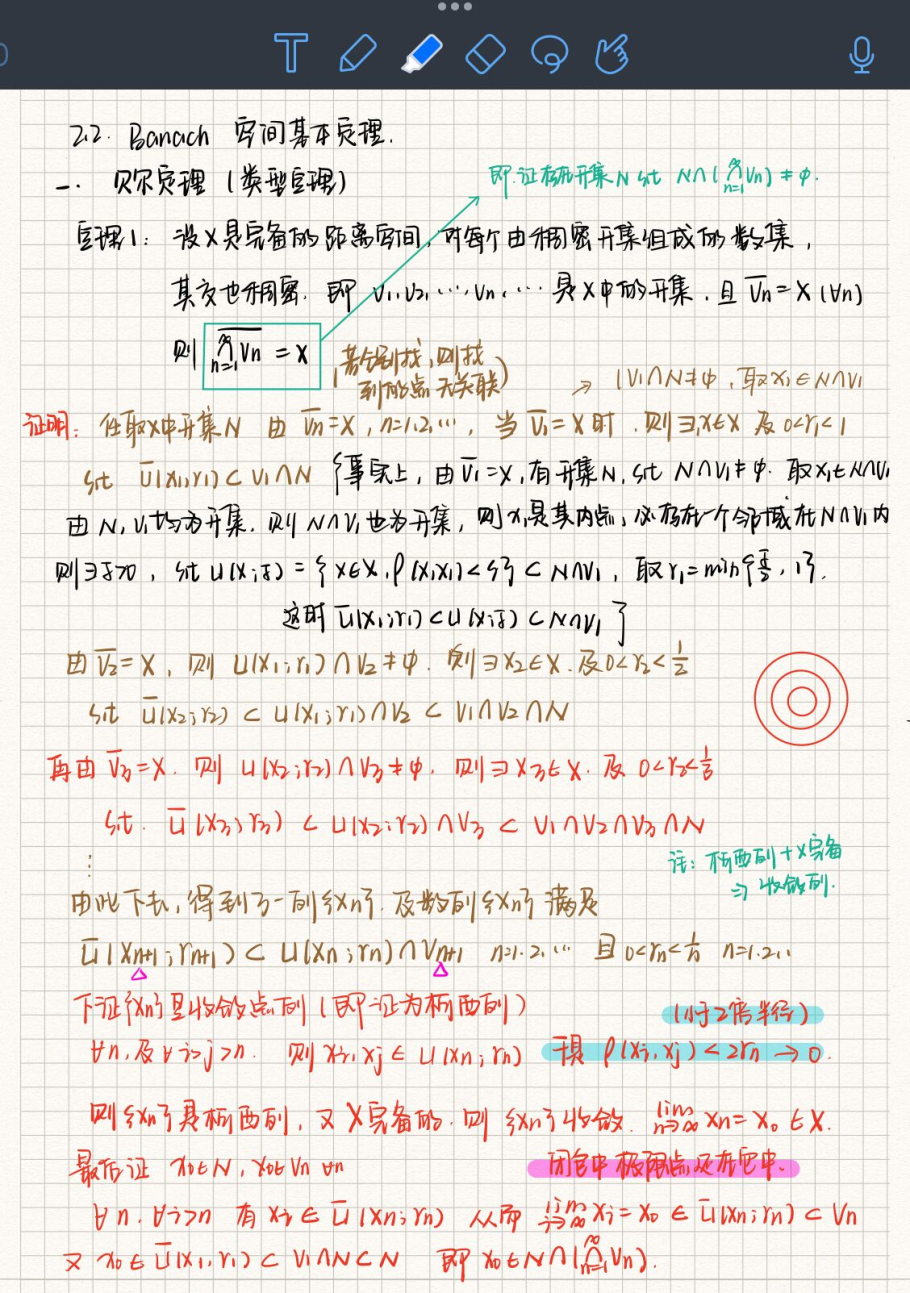 2.2. Banach 空间基本定理.
一. 贝尔定理 (类型定理)
即证存在开集N s.t N∩(∩_{n=1}^∞ Vn) ≠ φ.
定理1: 设X是完备的距离空间, 可每个由稠密开集组成的数集,
其交也稠密. 即 V1, V2, ⋯, Vn, ⋯ 是X中的开集. 且 V̅n = X (∀n)
则 \overline{∩_{n=1}^∞ Vn} = X
(若分别找, 则找
到的点无关联)
→ (V1∩N≠φ, 取x1∈N∩V1
证明: 任取X中开集N 由 V̅n = X, n=1,2,⋯, 当 V̅1 = X 时. 则∃x1∈X 及 0<r1<1
s.t U̅(x1;r1) ⊂ V1∩N {事实上, 由V̅1=X, 有开集N, s.t N∩V1≠φ. 取x1∈N∩V1
由N, V1均为开集. 则N∩V1也为开集, 则x1是其内点, 必存在一个邻域在N∩V1内
则∃δ>0, s.t U(x1;δ) = {x∈X, ρ(x,x1)<δ} ⊂ N∩V1, 取r1=min{δ/2, 1}.
这时 U̅(x1;r1) ⊂ U(x1;δ) ⊂ N∩V1 }
由 V̅2 = X, 则 U(x1;r1)∩V2≠φ. 则∃x2∈X. 及 0<r2<1/2
s.t U̅(x2;r2) ⊂ U(x1;r1)∩V2 ⊂ V1∩V2∩N
再由 V̅3=X. 则 U(x2;r2)∩V3≠φ. 则∃x3∈X. 及 0<r3<1/3
s.t. U̅(x3;r3) ⊂ U(x2;r2)∩V3 ⊂ V1∩V2∩V3∩N
⋮
注: 柯西列+X完备
⇒ 收敛列.
由此下去, 得到了一列{xn}. 及数列{xn} 满足
U̅(xn+1;rn+1) ⊂ U(xn;rn)∩Vn+1 n=1.2.⋯ 且 0<rn<1/n n=1.2..
下证{xn}是收敛点列 (即证为柯西列)
(小于2倍半径)
∀n, 及∀i>j>n. 则 xi, xj ∈ U(xn;rn) 于是 ρ(xi,xj)<2rn → 0.
则{xn}是柯西列, 又X完备的. 则{xn}收敛. lim_{n→∞} xn = x0 ∈ X.
最后证 x0∈N, x0∈Vn ∀n
闭包中极限点还在它中.
∀n. ∀i>n 有 xi∈U̅(xn;rn) 从而 lim_{i→∞} xi = x0 ∈ U̅(xn;rn) ⊂ Vn
又 x0∈U̅(x1,r1) ⊂ V1∩N⊂N 即 x0∈N∩(∩_{n=1}^∞ Vn).